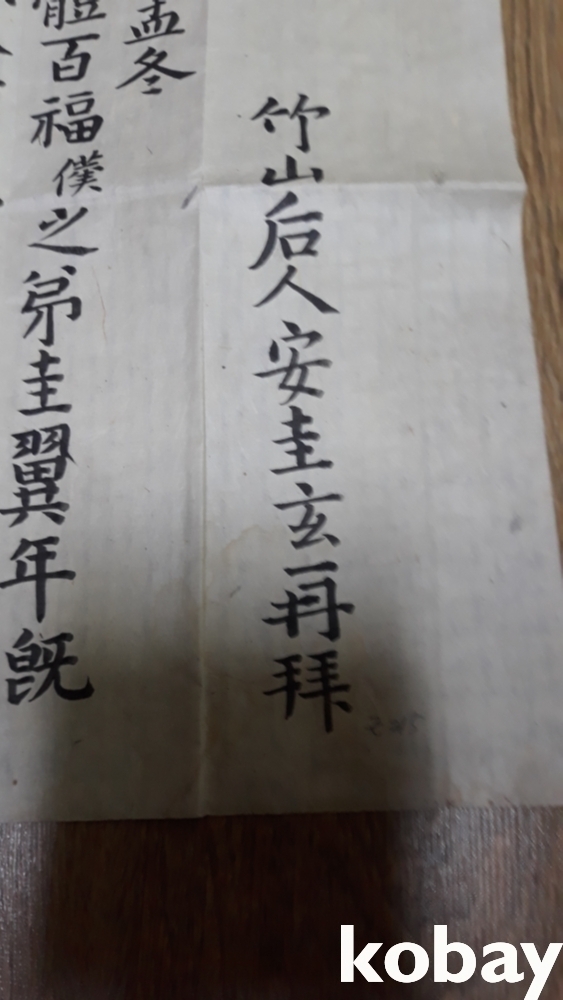 竹山后人安圭玄再拜
孟冬
體百福僕之弟圭翼年旣
kobay